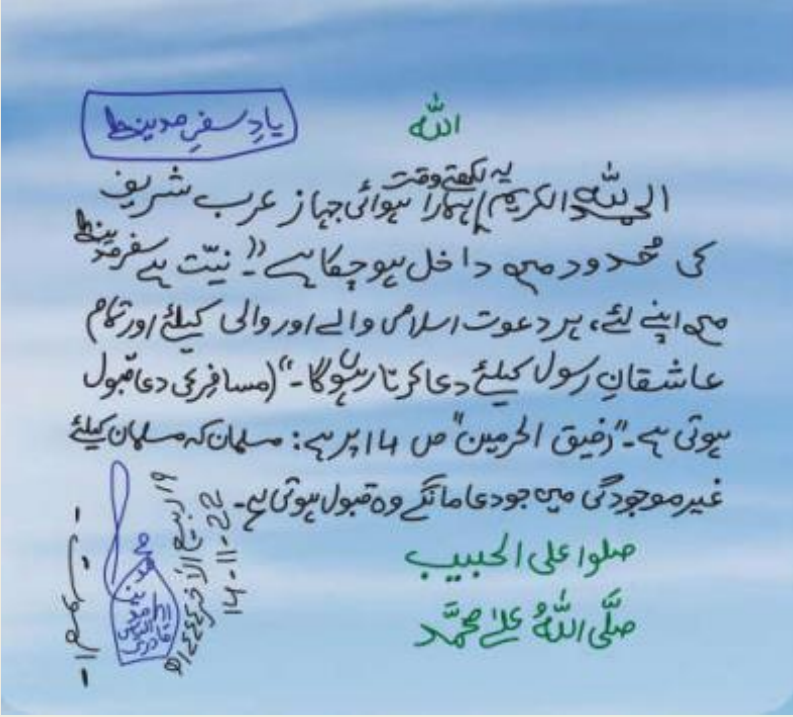 اللہ
یادِ سفرِ مدینہ
الحمدللہ الکریم! یہ لکھتے وقت ہمارا ہوائی جہاز عرب شریف
کی حُدود میں داخل ہوچکا ہے "۔ نیّت ہے سفرِ مدینہ
میں اپنے لئے، ہر دعوت اسلامی والے اور والی کیلئے اور تمام
عاشقانِ رسول کیلئے دعا کرتا رہوں گا۔" (مسافر کی دعا قبول
ہوتی ہے۔ "رفیق الحرمین" ص 14 پر ہے: مسلمان کہ مسلمان کیلئے
غیر موجودگی میں جو دعا مانگے وہ قبول ہوتی ہے۔
صلوا علی الحبیب
صلَّی اللہُ علیٰ محمَّد
۱۹ ربیع الآخر ۱۴۴۴ھ
14-11-22
محمد الیاس قادری